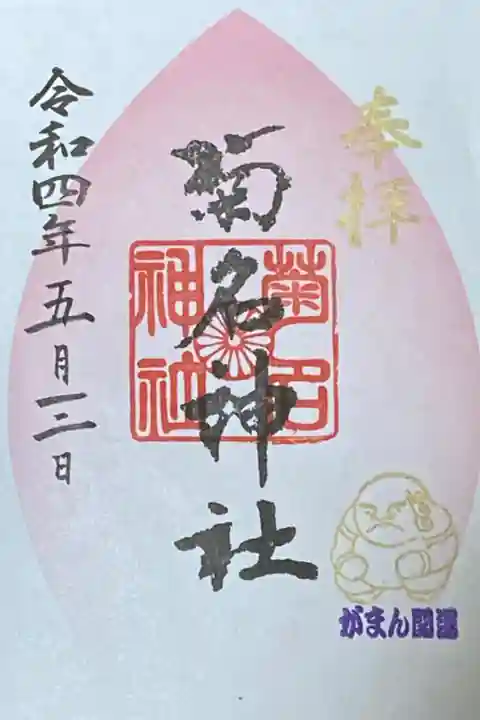 奉拝
菊名神社
菊名神社
令和四年五月三日
がまん開運